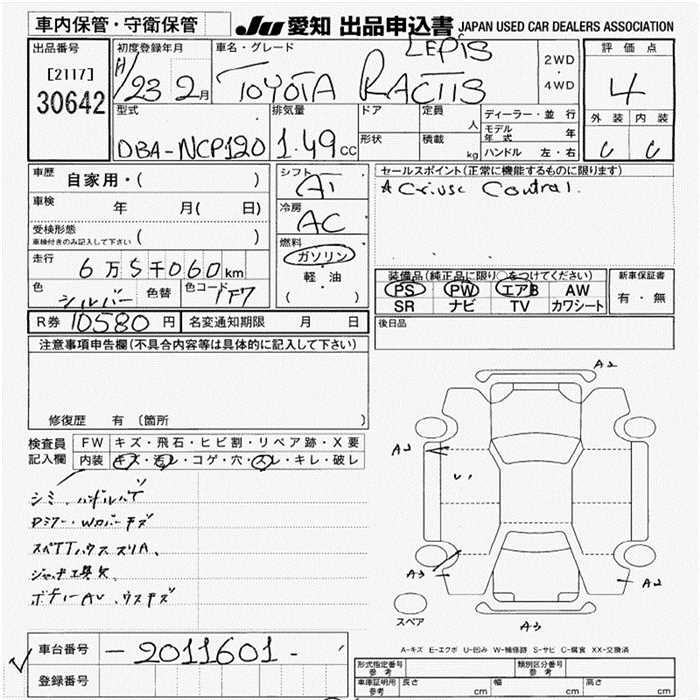 車内保管・守衛保管
JU 愛知 出品申込書 JAPAN USED CAR DEALERS ASSOCIATION
出品番号
[2117]
30642
初度登録年月
H/23 2月
車名・グレード
LEPIS
TOYOTA RACTIS
2WD
・
4WD
評価点
4
外装 内装
C C
型式
DBA-NCP120
排気量
1.49 CC
ドア
形状
定員 人
積載 kg
ディーラー・並行
モデル年式 年
ハンドル 左・右
車歴
自家用・( )
車検 年 月( 日)
受検形態
車検付きのみ記入して下さい ( )
走行 6万5千060km
色 シルバー 色替 色コード 1F7
シフト
AT
冷房
AC
燃料
ガソリン
軽・油
( )
セールスポイント(正常に機能するものに限ります)
装備品(純正品に限り○をつけてください)
PS PW エアB AW
SR ナビ TV カワシート
新車保証書
有・無
R券 10580 円 名変通知期限 月 日
後日品
注意事項申告欄(不具合内容等は具体的に記入して下さい)
修復歴 有 (箇所 )
検査員
記入欄
FW キズ・飛石・ヒビ割・リペア跡・X要
内装 キズ・汚レ・コゲ・穴・スレ・キレ・破レ
A2
A2
A3
A2
A3
スペア
A-キズ E-エクボ U-凹み W-補修跡 S-サビ C-腐食 XX-交換済
車台番号 -2011601-
登録番号
形式指定番号
参考
類別区分番号
参考
車庫証明用
参考
長さ cm
幅 cm
高さ cm